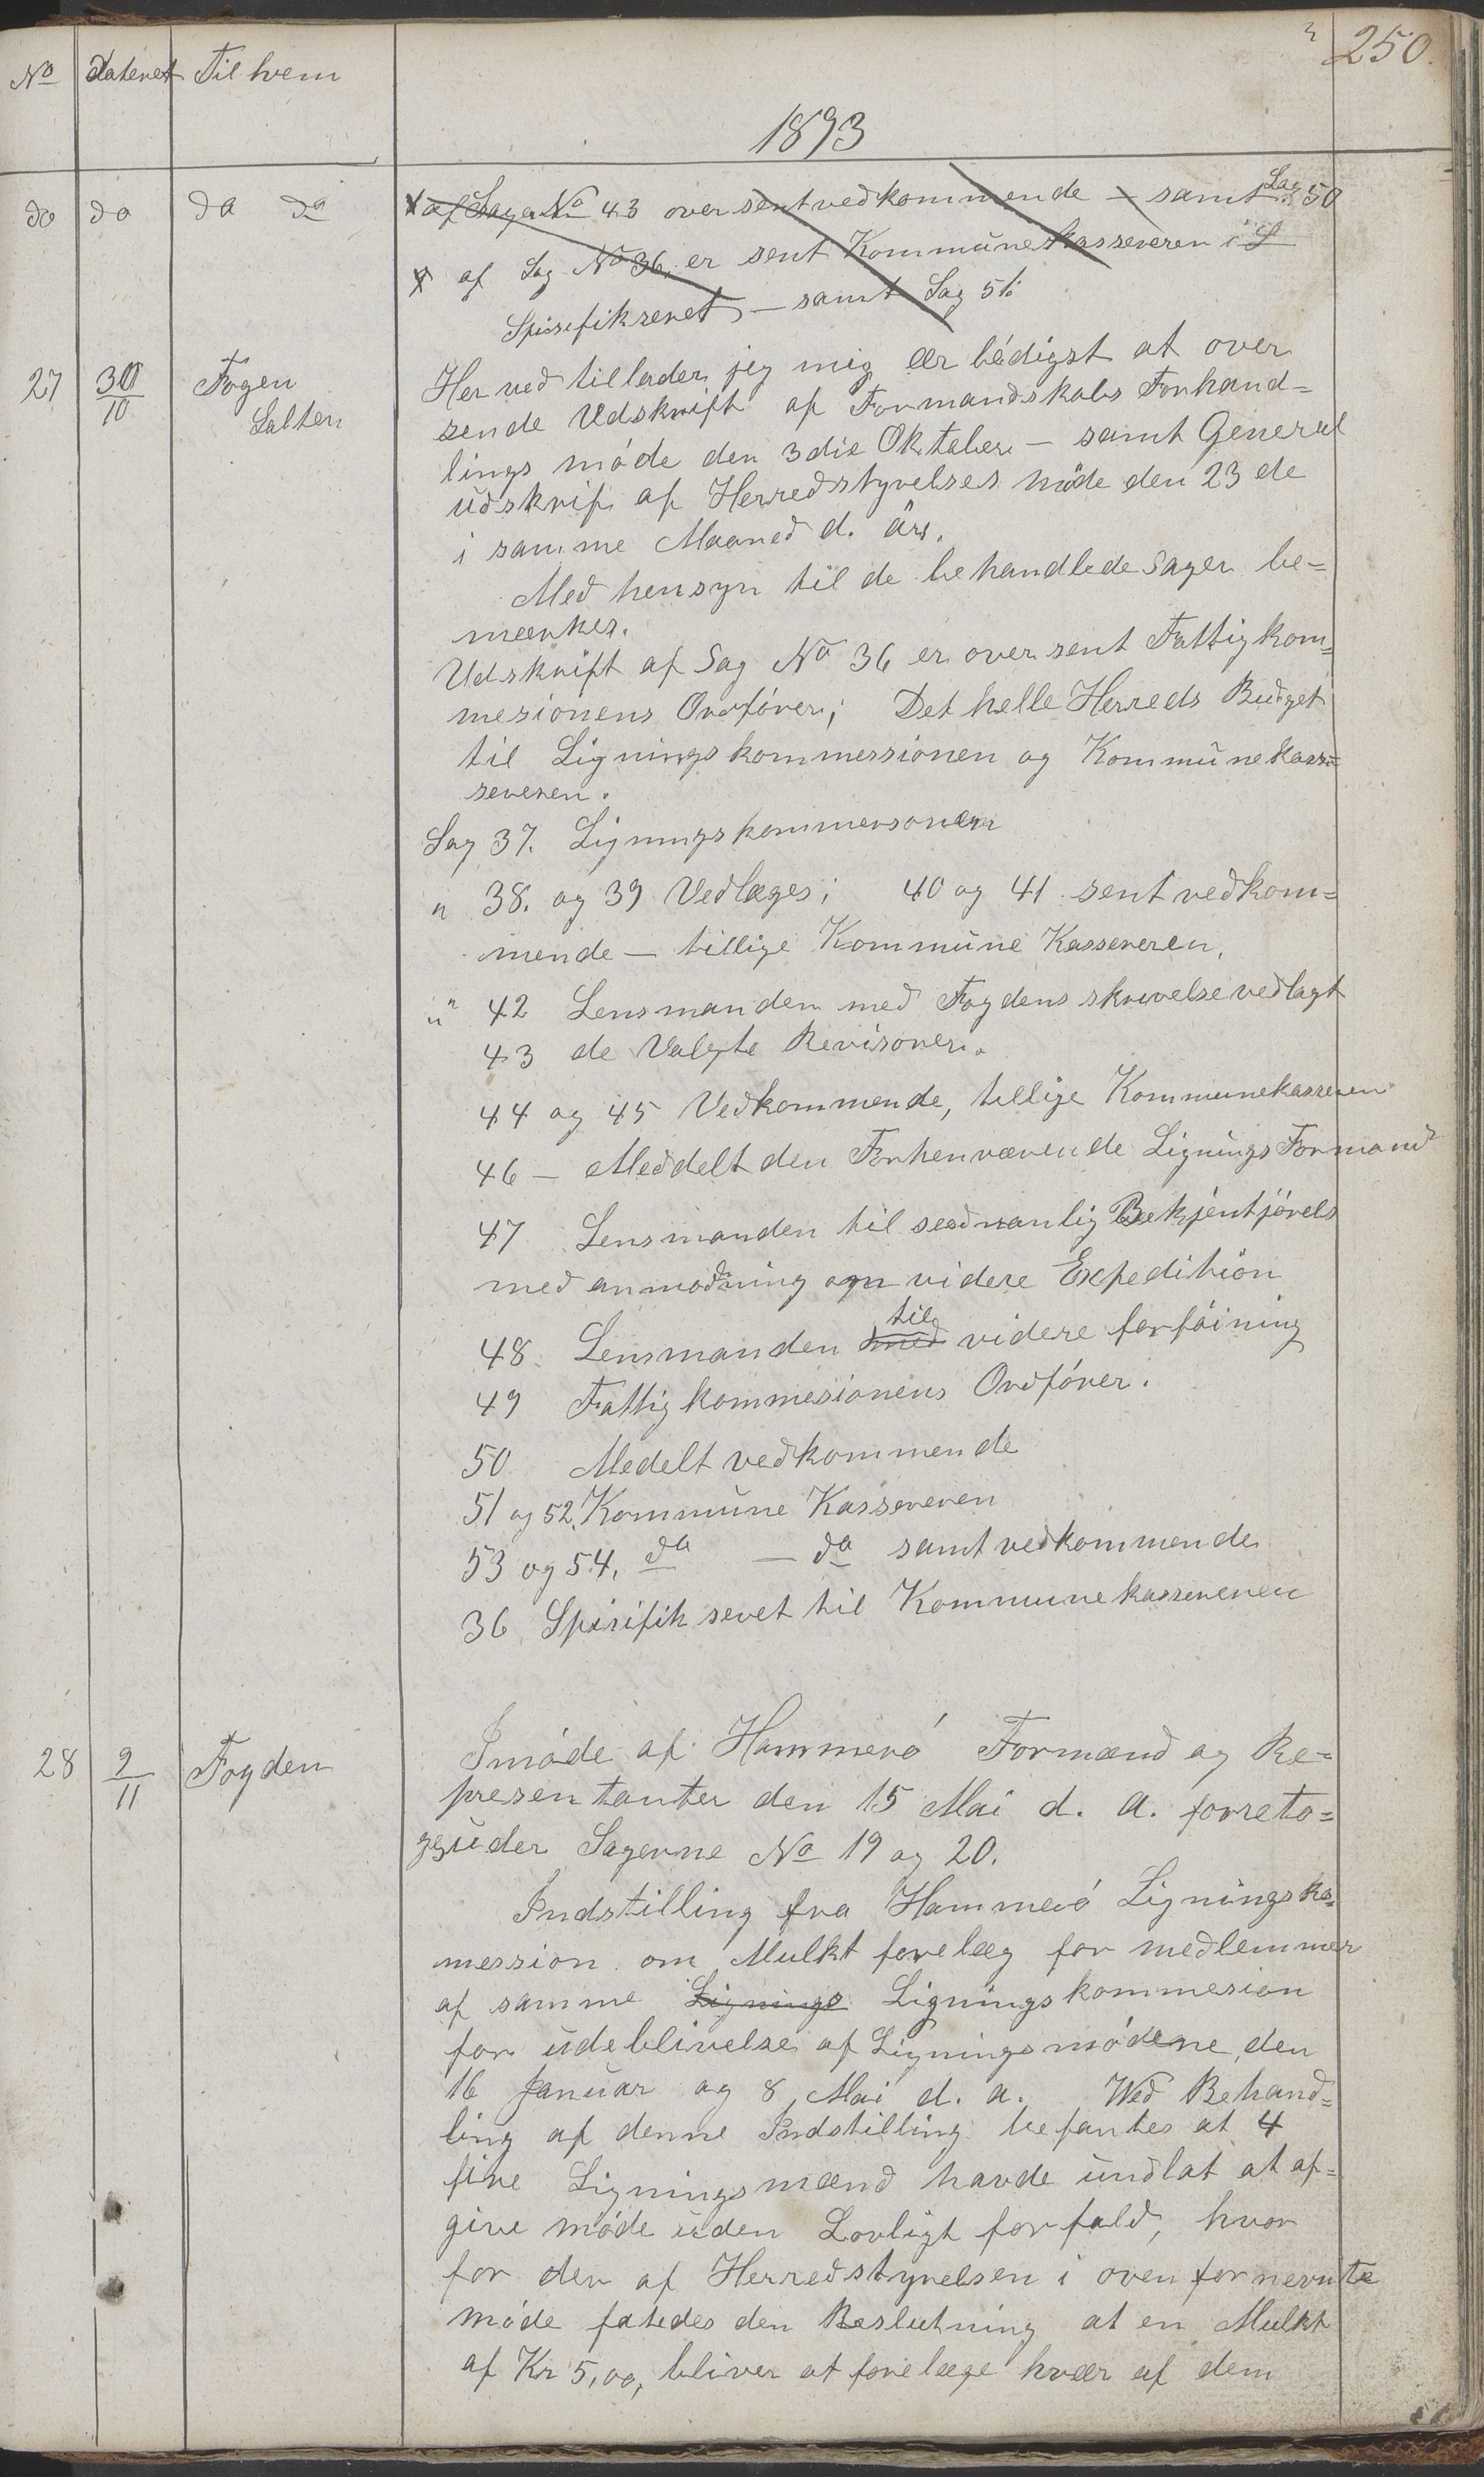 250.
No Dateret Til hvem
1893
do do do do
af Sager No 43 oversent vedkommende - samt Sag 50
af Sag No 36. er sent Kommunekassereren i S
Spissefikseret - samt Sag 51:
27 30/10 Fogen Salten
Her ved tillader jeg mig ær bödigst at over
sende Udskrift af Formandskabs Forhand=
lings möde den 3die Oktober - samt General
udskrif af Herredstyrelses möde den 23 de
i samme Maaned d. års.
Med hensyn til de behandlede Sager be=
mærkes.
Udskrift af Sag No 36 er over sent Fattigkom=
mesionens Ordförer; Det helle Herreds Budget
til Ligningskommessionen og Kommunekass=
sereren.
Sag 37. Ligningskommersonen
" 38. og 39 Vedlæges; 40 og 41 sent vedkom=
mende - tillige Kommune Kassereren.
" 42 Lensmanden med Fogdens skrivelse vedlagt
43 de Valgte Revisorer.
44 og 45 Vedkommende, tillige Kommunekasseren
46 - Meddelt den Forhenværende Lignings Formand
47 Lensmanden til sedvanlig Bekjentjörels
med anmodning om videre Expedition
48 Lensmanden med til videre forföining
49 Fattigkommesionens Ordförer.
50 Medelt vedkommende
51 og 52. Kommune Kassereren
53 og 54. do - do samt vedkommende
36 Spisifikseret til Kommunekassereren
28 9/11 Fogden
I möde af Hammerö Formænd og Re=
presentanter den 15 Mai d. A. forreto=
ges under Sagerne No 19 og 20.
Indstilling fra Hammerö Ligningsko=
mession om Mulkt forelæg for medlemmer
af samme Lignings Ligningskommesion
for udeblivelse af Ligningsmödene den
16 Januar og 8 Mai d. a. Wed Behand=
ling af denne Indstilling befantes at 4
fire Ligningsmænd havde undlat at af=
give möde uden Lovligt forfald, hvor
for der af Herredstyrelsen i oven fornevnte
möde fatedes den Beslutning at en Mulkt
af Kr 5,00, bliver at forelæge hvær af dem